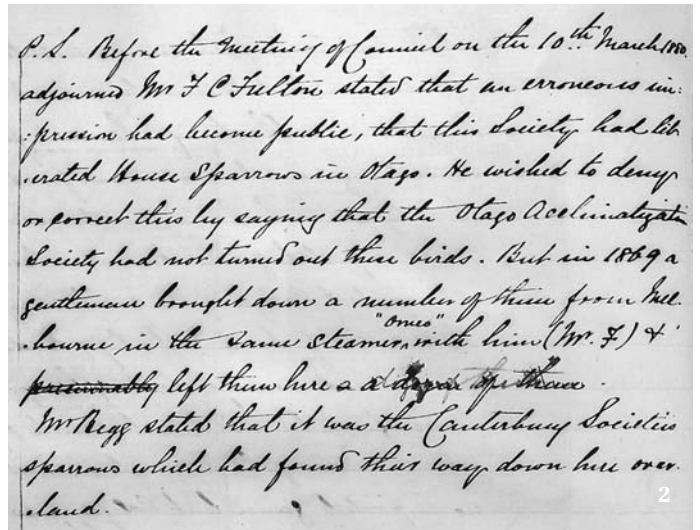 P.S. Before the Meeting of Council on the 10th March 1880.
adjourned Mr F C Fulton stated that an erroneous im:
:pression had become public, that this Society had lib
.erated House Sparrows in Otago. He wished to deny
or correct this by saying that the Otago Acclimatizatn
Society had not turned out these birds. But in 1869 a
gentleman brought down a number of them from Mel.
.bourne in the same steamer, "Omeo" with him (Mr. F) &
presumably left them here
Mr Begg stated that it was the Canterbury Societies
sparrows which had found their way down here over.
.land.
2